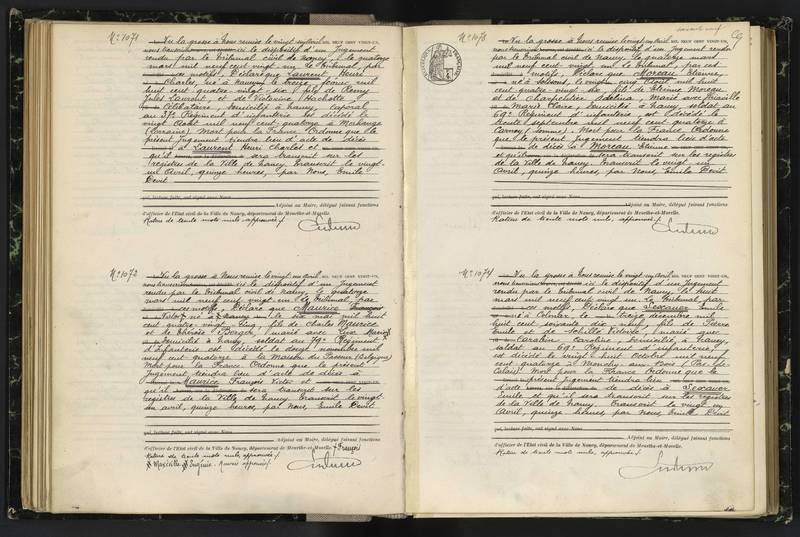 N° 1071
Vu la grosse à Nous remise le vingt un avril MIL NEUF CENT VINGT-UN,
nous transcrivons ici le dispositif d'un Jugement
rendu par le Tribunal civil de Nancy, le quatorze
mars mil neuf cent vingt un Le Tribunal, par
ces motifs, Déclare que Laurent, Henri
Charles, né à Nancy le treize février mil
huit cent quatre-vingt six, fils de Remy
Jules Laurent, et de Victorine Hachotte
Célibataire, domicilié à Nancy, caporal
au 37e Régiment d'infanterie est décédé le
vingt Août mil neuf cent quatorze à Morhange
(Lorraine) Mort pour la France. Ordonne que le
présent Jugement tiendra lieu d'acte de décès
à Laurent Henri Charles et
qu'il sera transcrit sur les
registres de la Ville de Nancy. Transcrit le vingt-
un Avril, quinze heures, par Nous, Emile
Devit
qui, lecture faite, ont signé avec Nous
Adjoint au Maire, délégué faisant fonctions
d'officier de l'Etat civil de la Ville de Nancy, département de Meurthe-et-Moselle.
Rature de trente mots nuls, approuvée
N° 1072
Vu la grosse à Nous remise le vingt un avril MIL NEUF CENT VINGT-UN,
nous transcrivons ici le dispositif d'un Jugement
rendu par le Tribunal civil de Nancy, le quatorze
mars mil neuf cent vingt un Le Tribunal, par
ces motifs, Déclare que Maurice François
Victor né à Nancy le six mai mil huit
cent quatre-vingt cinq, fils de Charles Maurice
et de Thérèse
domicilié à Nancy, soldat au 79e Régiment
d'Infanterie est décédé le douze novembre mil
neuf cent quatorze à la Maison du Passeur (Belgique)
Mort pour la France. Ordonne que le présent
Jugement tiendra lieu d'acte de décès à
Maurice François Victor et
qu'il sera transcrit sur les
registres de la Ville de Nancy. Transcrit le vingt-
un avril, quinze heures, par Nous, Emile Devit
qui, lecture faite, ont signé avec Nous
Adjoint au Maire, délégué faisant fonctions
d'officier de l'Etat civil de la Ville de Nancy, département de Meurthe-et-Moselle.
Rature de trente mots nuls, approuvée
Eugénie
69
N° 1073
Vu la grosse à Nous remise le vingt un avril MIL NEUF CENT VINGT-UN,
nous transcrivons ici le dispositif d'un Jugement rendu
par le Tribunal civil de Nancy, le quatorze mars
mil neuf cent vingt un Le Tribunal, par ces
motifs, Déclare que Moreau Etienne,
né à Soissons, le vingt cinq Août mil huit
cent quatre-vingt six, fils de Etienne Moreau
et de Charpentier Adelina, Marié avec
Marie Claire, domicilié à Nancy, soldat au
69e Régiment d'infanterie est décédé le
trente septembre mil neuf cent quatorze à
Carnoy (Somme), Mort pour la France. Ordonne
que le présent Jugement tiendra lieu d'acte
de décès à Moreau Etienne
et qu'il sera transcrit sur les registres
de la Ville de Nancy. Transcrit le vingt un
Avril, quinze heures, par Nous, Emile Devit
qui, lecture faite, ont signé avec Nous
Adjoint au Maire, délégué faisant fonctions
d'officier de l'Etat civil de la Ville de Nancy, département de Meurthe-et-Moselle.
Rature de trente mots nuls, approuvée
N° 1074
Vu la grosse à Nous remise le vingt un avril MIL NEUF CENT VINGT-UN,
nous transcrivons ici le dispositif d'un Jugement
rendu par le Tribunal civil de Nancy, le huit
mars mil neuf cent vingt un Le Tribunal par
ces motifs, Déclare que Emile
né à le treize décembre mil
huit cent soixante dix neuf, fils de Pierre
Emile et de marié avec
Caroline, domicilié à Nancy,
soldat au 69e Régiment d'infanterie,
est décédé le vingt-huit Octobre mil neuf
cent quatorze à Monchy-au-Bois (Pas-de-
Calais) Mort pour la France Ordonne que le
présent Jugement tiendra lieu
d'acte de décès à
Emile et qu'il sera transcrit sur les registres
de la Ville de Nancy. Transcrit le vingt un
Avril, quinze heures par Nous Emile Devit
qui, lecture faite, ont signé avec Nous
Adjoint au Maire, délégué faisant fonctions
d'officier de l'Etat civil de la Ville de Nancy, département de Meurthe-et-Moselle.
Rature de trente mots nuls, approuvée